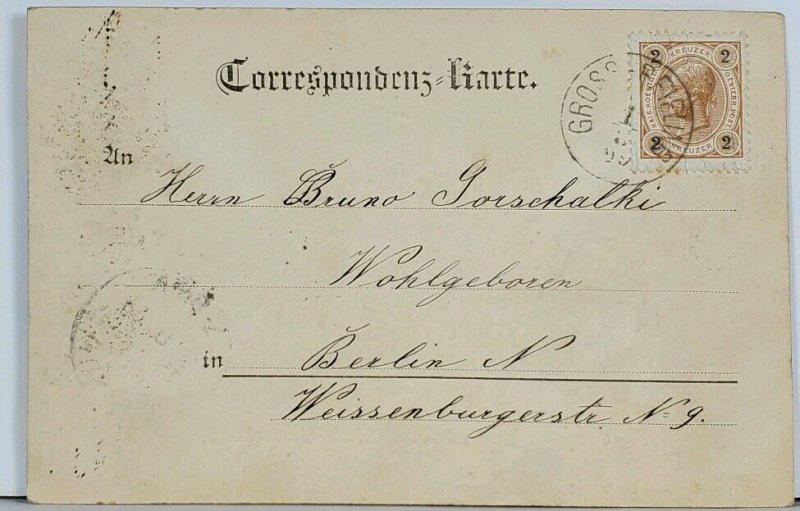 Correspondenz-Karte.
2 KREUZER 2
KAIS. KOENIGL. OESTERR. POST
2 KREUZER 2
GROSS
99
An
Herrn Bruno Gorschalki
Wohlgeboren
in Berlin N
Weissenburgerstr N. 9.